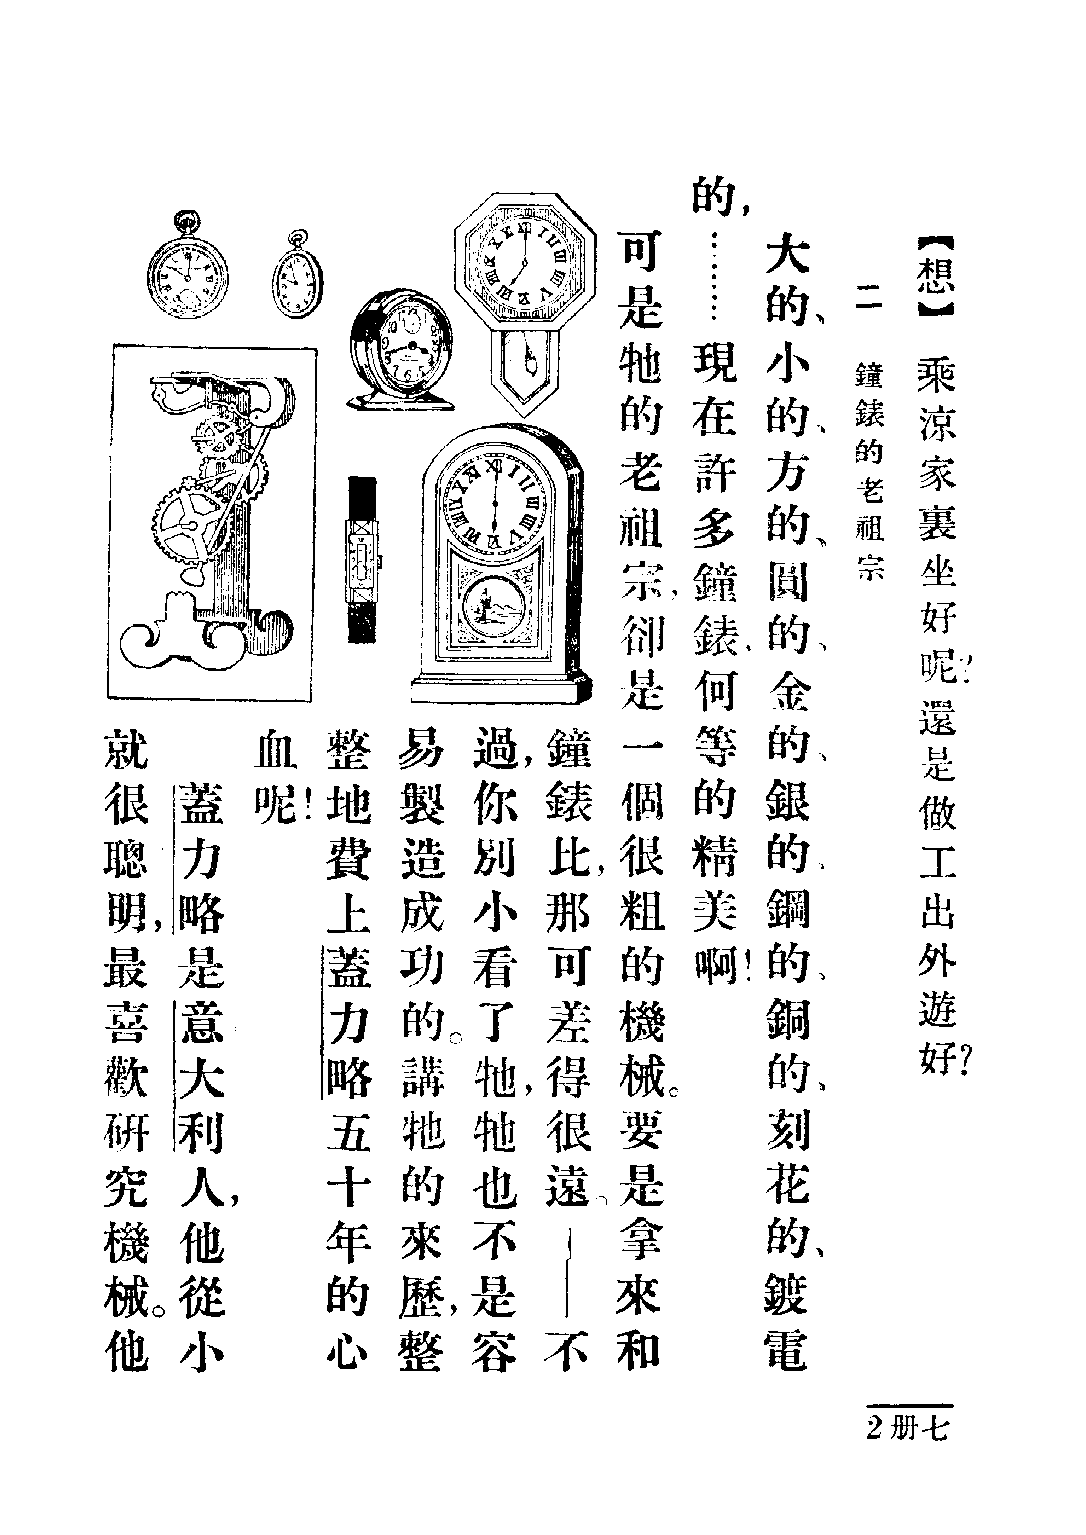 【想】 乘涼家裏坐好呢?還是做工出外遊好?
二 鐘錶的老祖宗
大的、小的、方的、圓的、金的、銀的、鋼的、銅的、刻花的、鍍電
的,………現在許多鐘錶、何等的精美啊!
可是牠的老祖宗,卻是一個很粗的機械。要是拿來和
鐘錶比,那可差得很遠、——不
過,你別小看了牠,牠也不是容
易製造成功的。講牠的來歷,整
整地費上蓋力略五十年的心
血呢!
蓋力略是意大利人,他從小
就很聰明,最喜歡研究機械。他
2册七